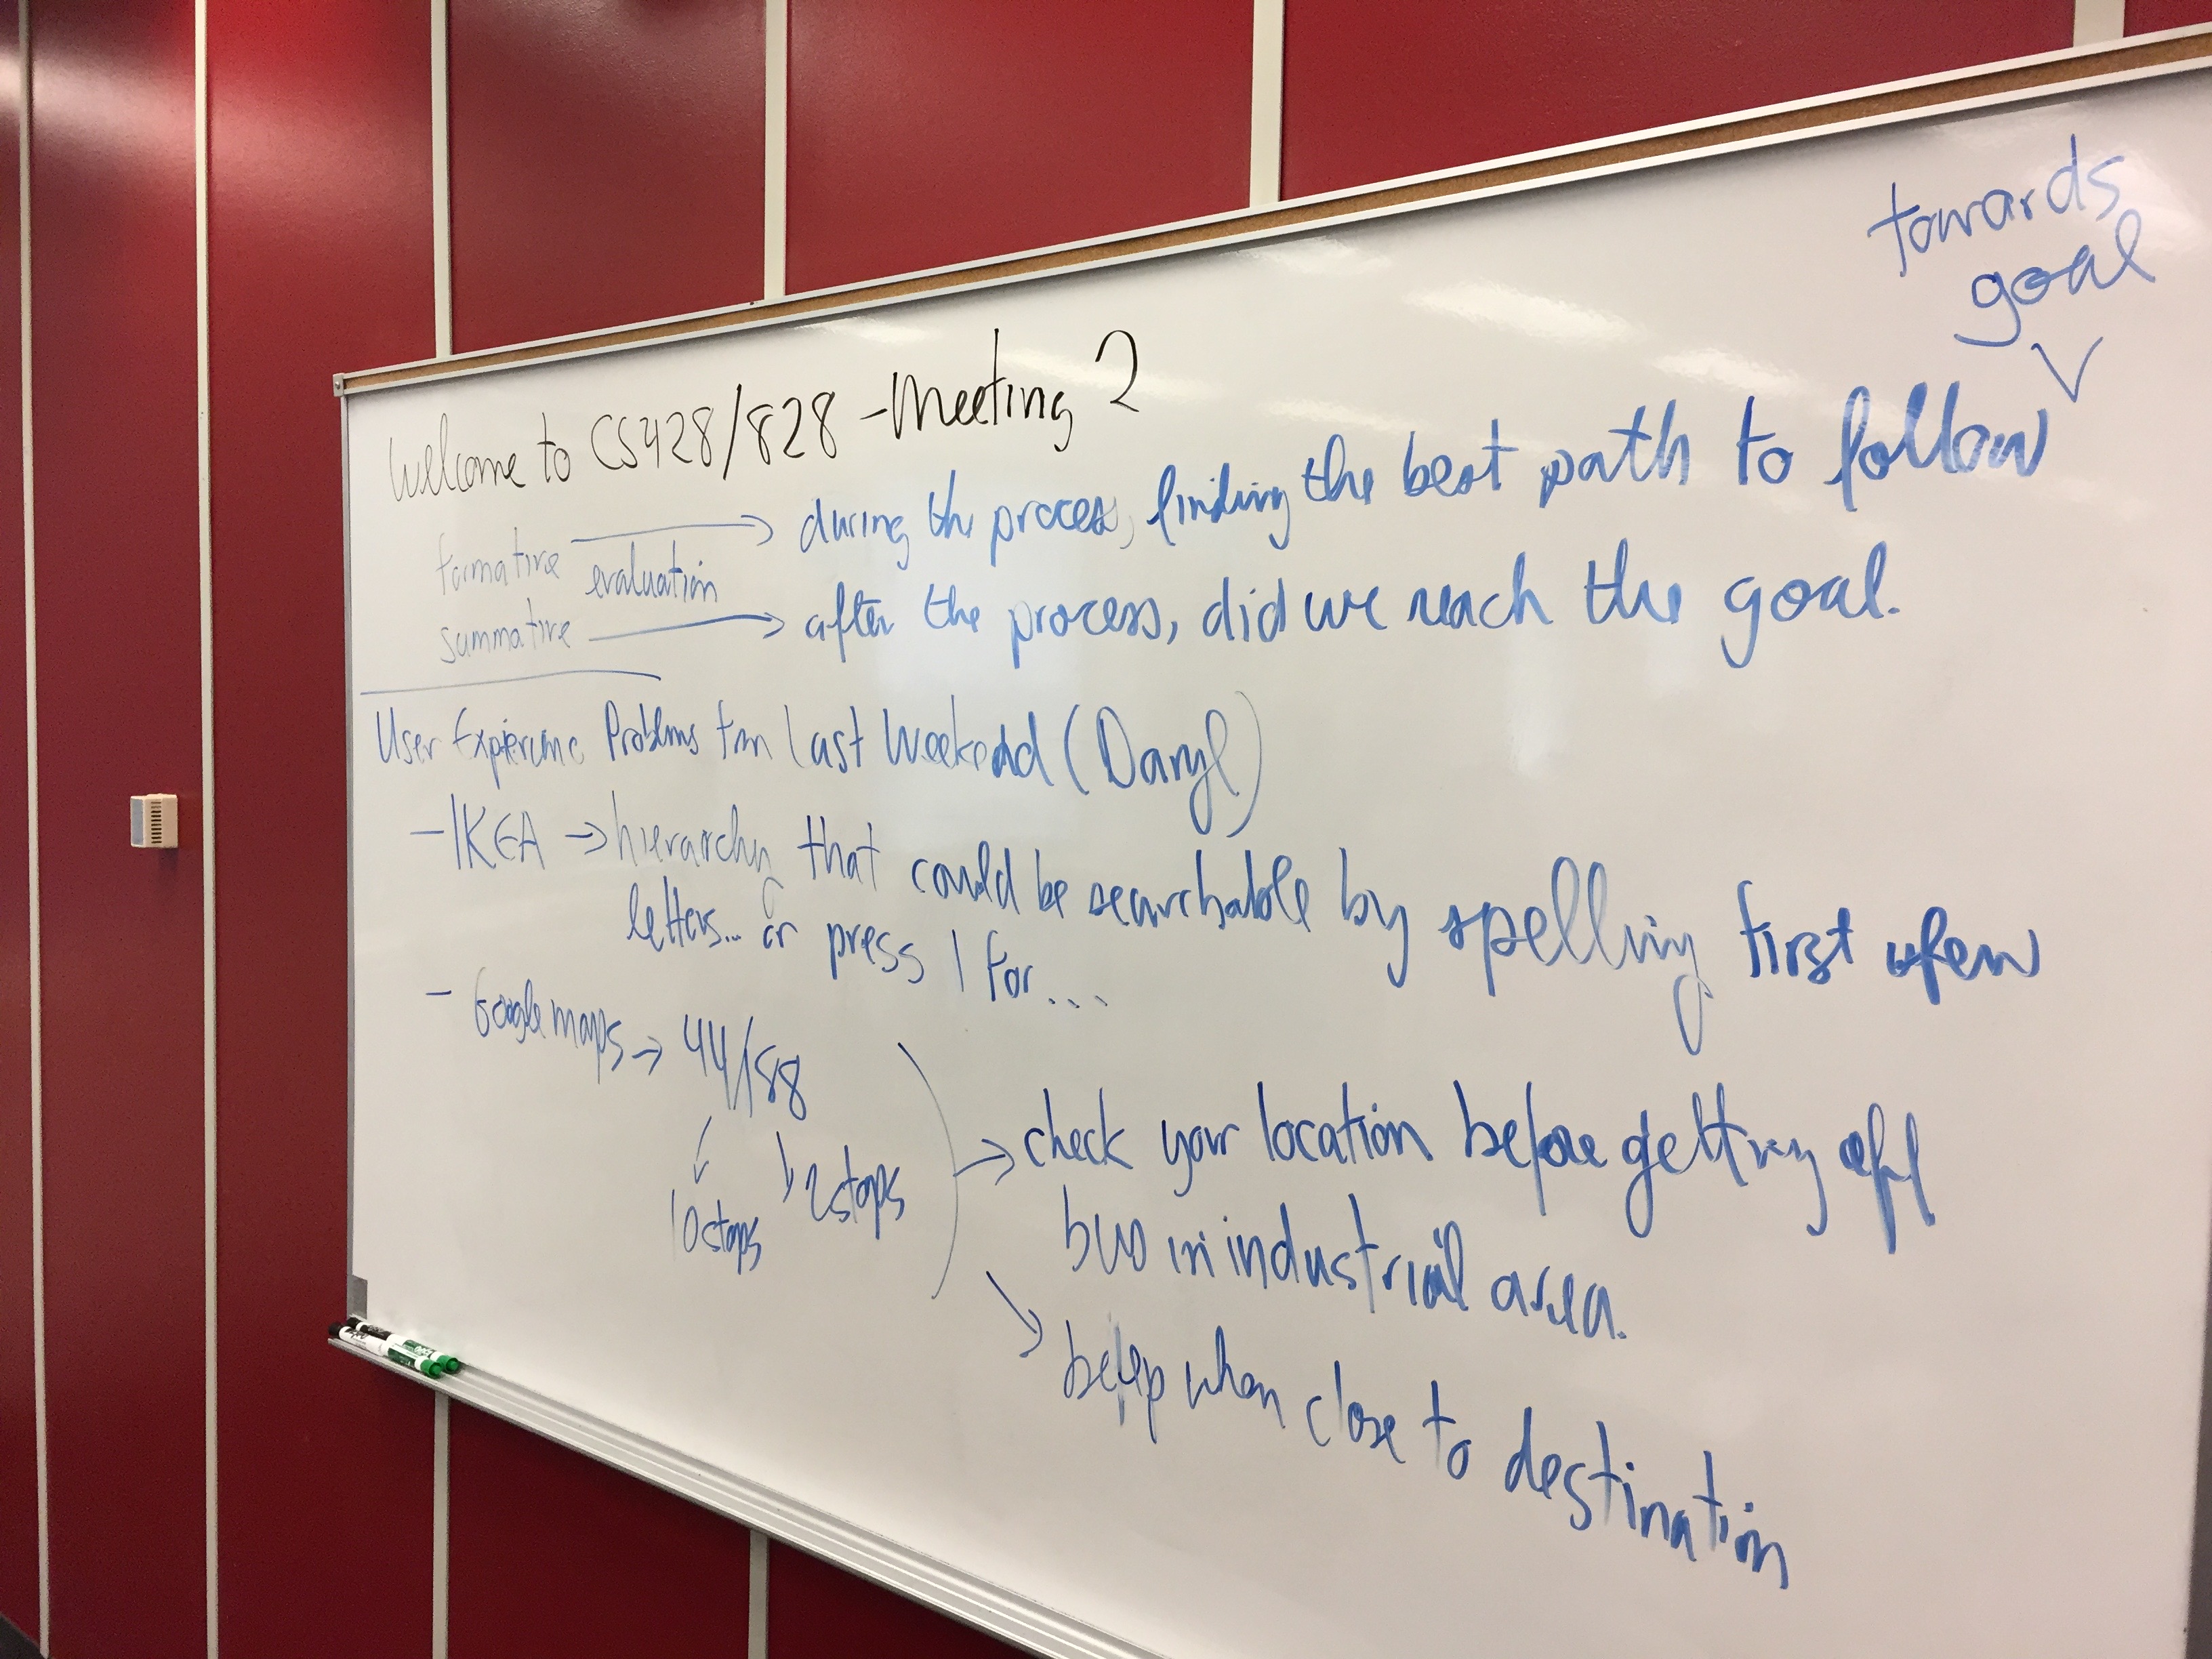 Welcome to CS428/828 - Meeting 2
towards
goal
formative evaluation → during the process, finding the best path to follow
summative → after the process, did we reach the goal.
User Experience Problems from Last Weekend (Daryl)
- IKEA → hierarchy that could be searchable by spelling first few
letters... or press 1 for...
- Google maps → 44/88
10 stops
2 stops
→ check your location before getting off
bus in industrial area.
beep when close to destination